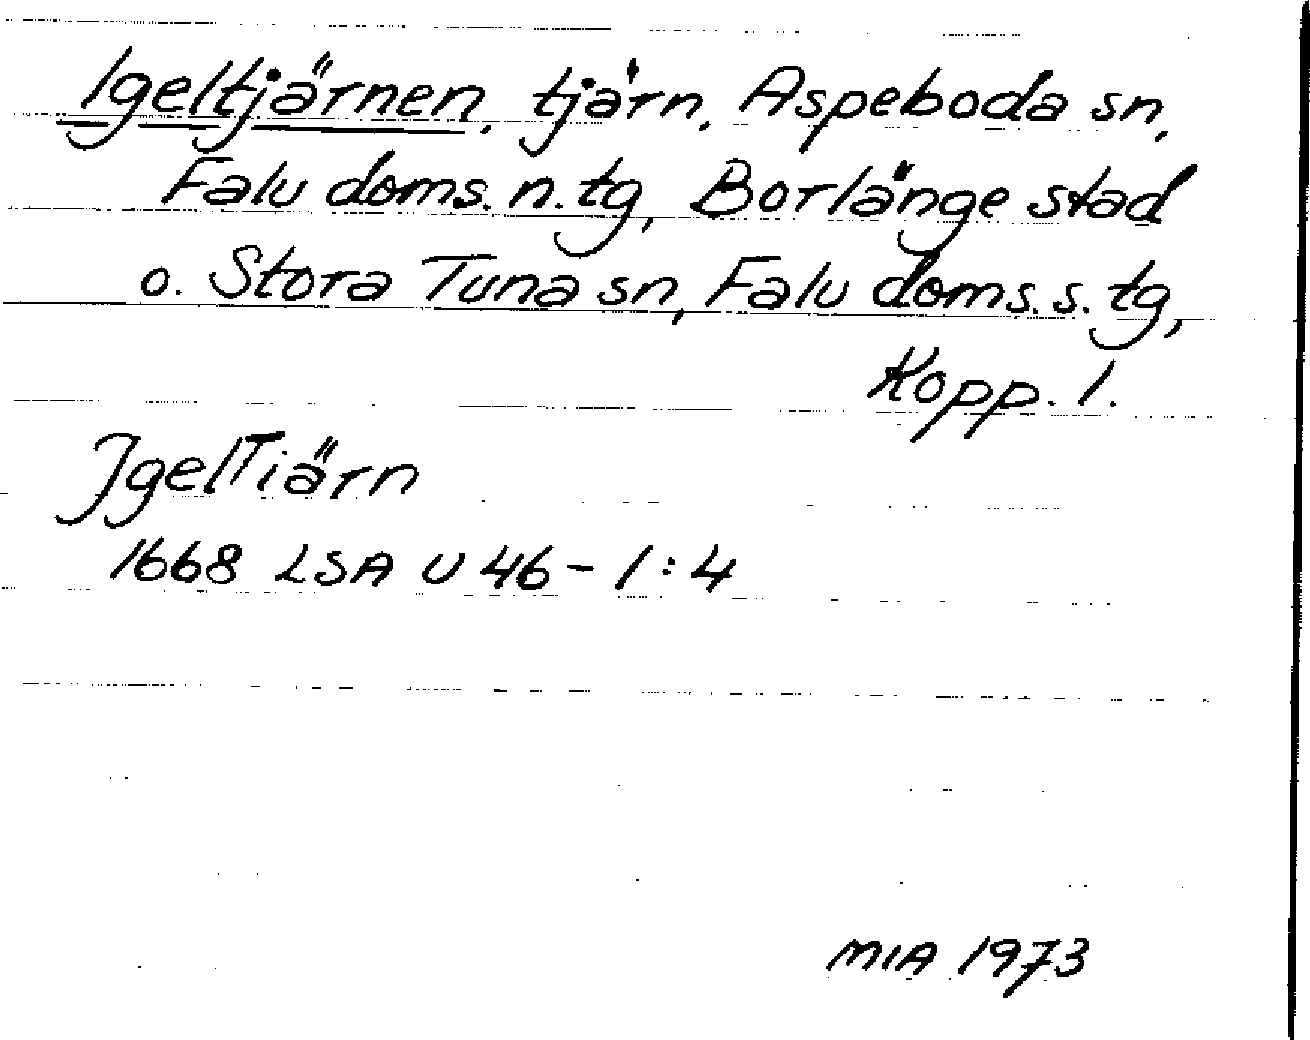 Igeltjärnen, tjärn, Aspeboda sn,
Falu doms. n. tg, Borlänge stad
o. Stora Tuna sn, Falu doms. s. tg,
Kopp. l.
JgelTiärn
1668 LSA U 46-1:4
MIA 1973